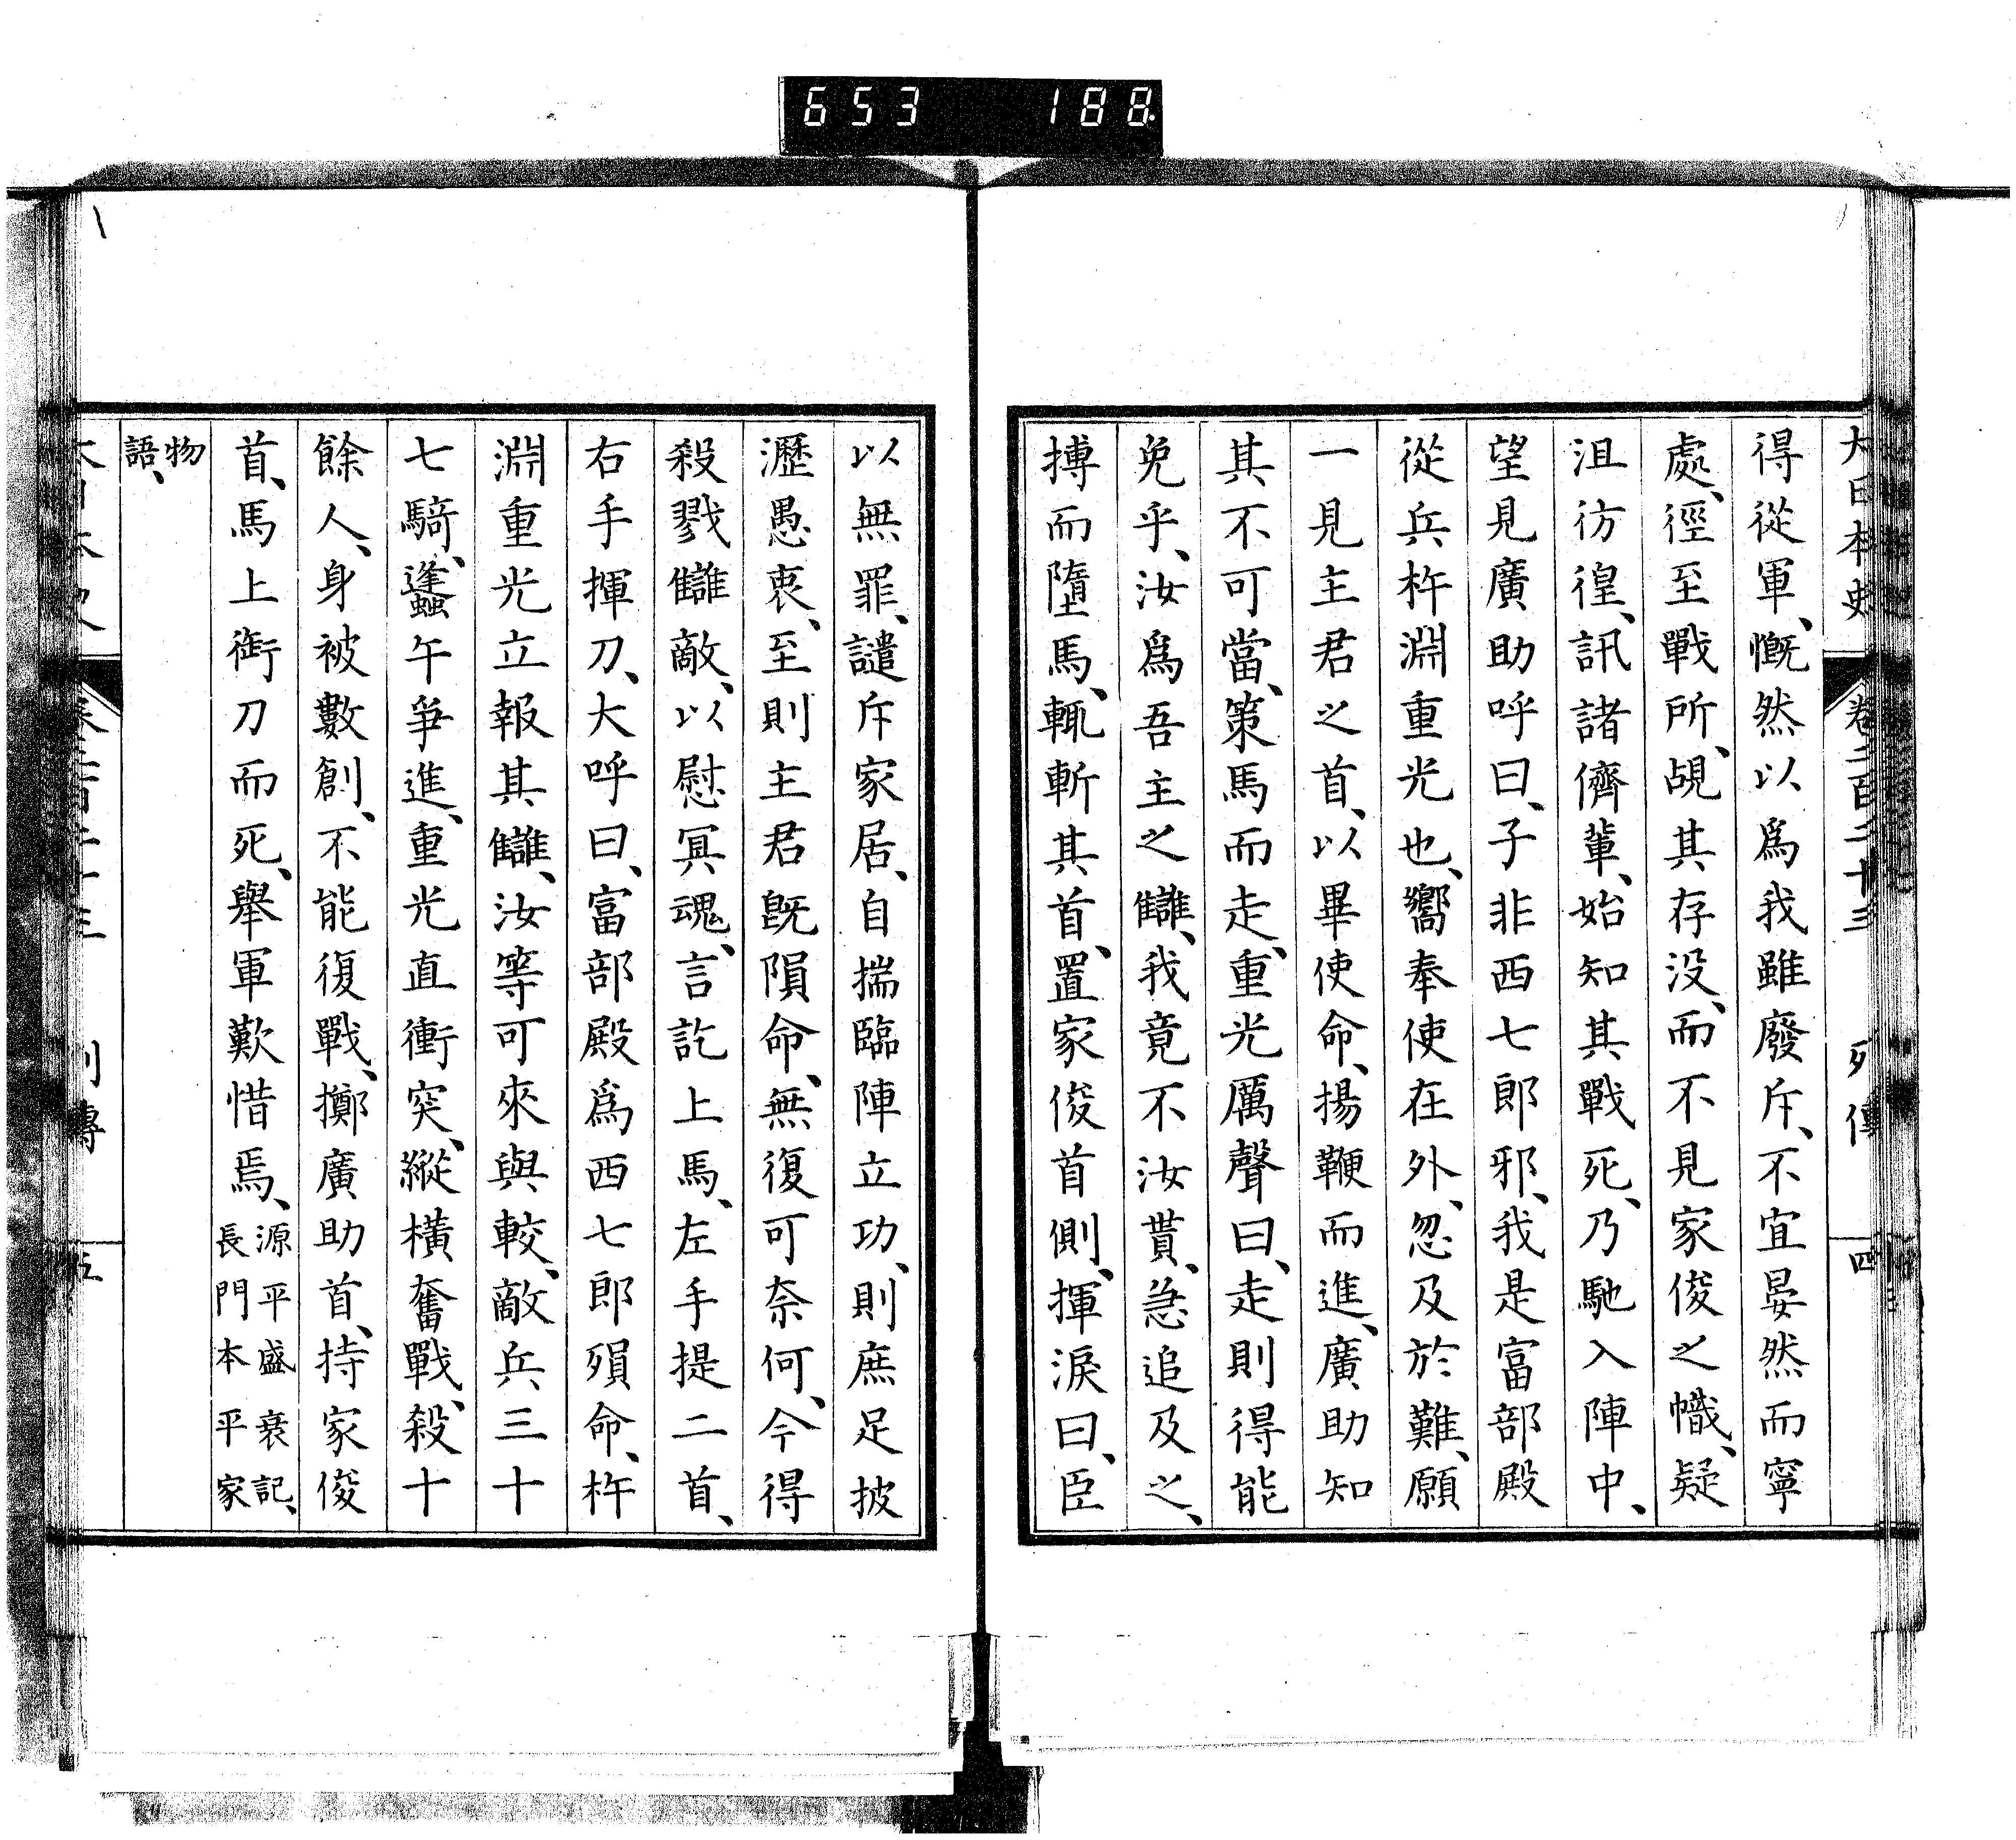 653 188
大日本史 卷二百二十三 列傳 四
得從軍、慨然以爲我雖廢斥、不宜晏然而寧
處、徑至戰所、覘其存没、而不見家俊之幟、疑
沮彷徨、訊諸儕輩、始知其戰死、乃馳入陣中、
望見廣助呼曰、子非西七郎邪、我是富部殿
從兵杵淵重光也、嚮奉使在外、忽及於難、願
一見主君之首、以畢使命、揚鞭而進、廣助知
其不可當、策馬而走、重光厲聲曰、走則得能
免乎、汝爲吾主之讎、我竟不汝貰、急追及之、
搏而墮馬、輒斬其首、置家俊首側、揮淚曰、臣
以無罪、譴斥家居、自揣臨陣立功、則庶足披
瀝愚衷、至則主君既隕命、無復可奈何、今得
殺戮讎敵、以慰冥魂、言訖上馬、左手提二首、
右手揮刀、大呼曰、富部殿爲西七郎殞命、杵
淵重光立報其讎、汝等可來與較、敵兵三十
七騎、蠭午爭進、重光直衝突、縱橫奮戰、殺十
餘人、身被數創、不能復戰、擲廣助首、持家俊
首、馬上銜刀而死、舉軍歎惜焉、源平盛衰記、長門本平家
物語、
大日本史 卷二百二十三 列傳 五